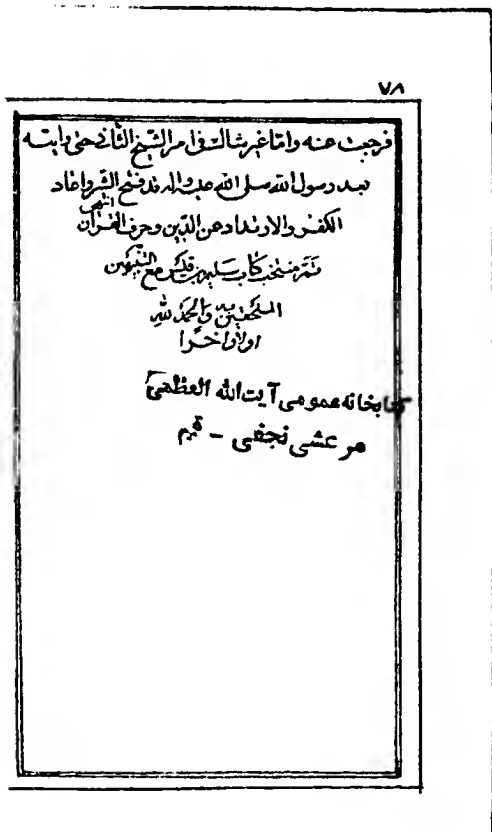 ٧٨
فرجعت عنه واما غير شاك في امر الشيخ الثاني حتى رايته
بعد رسول الله صلى الله عليه واله قد فتح الشر واعاد
الكفر والارتداد عن الدين وحرف القران انتهى
تم منتخب كتاب سليم بن قيس مع
الملحقين به والحمد لله
اولا واخرا
كتابخانه عمومى آيت الله العظمى
مرعشى نجفى - قم